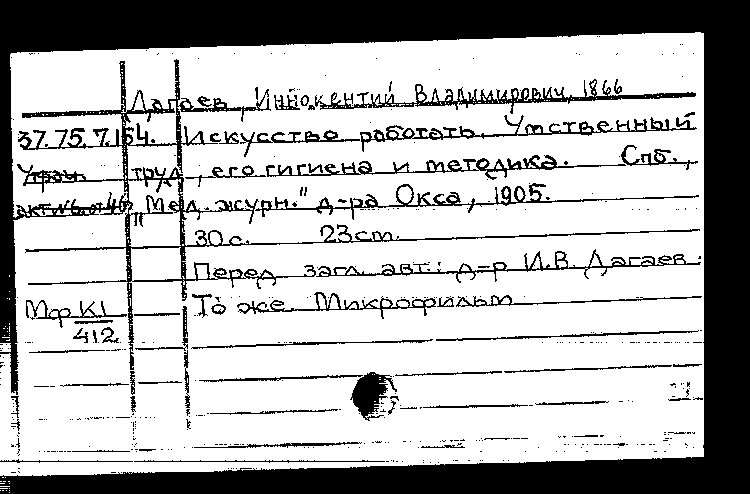 Дагаев, Иннокентий Владимирович, 1866
37.75.7.154. Искусство работать. Умственный
Утрач. труд, его гигиена и методика. Спб.,
"Мед. журн." д-ра Окса, 1905.
30 с. 23 cm.
Перед загл. авт.: д-р И.В. Дагаев.
Мф К1 То же. Микрофильм
412